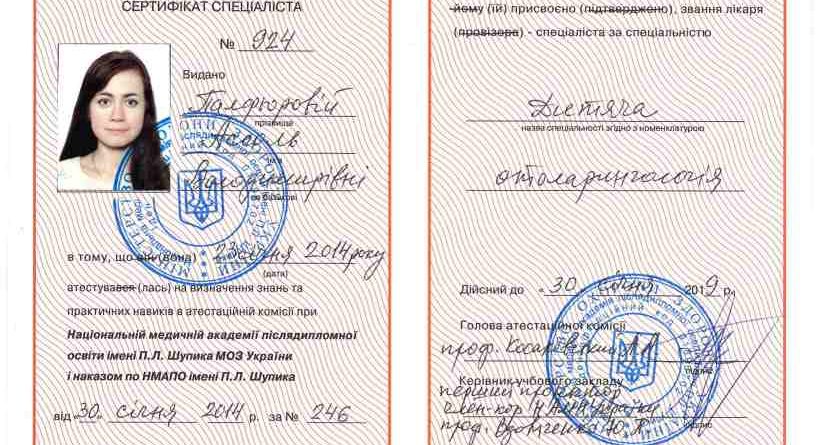 СЕРТИФІКАТ СПЕЦІАЛІСТА
№ 924
Видано
Палфюровій
прізвище
ім'я
Володимирівні
по батькові
в тому, що він (вона) 23 січня 2014 року
(дата)
атестувався (лась) на визначення знань та
практичних навиків в атестаційній комісії при
Національній медичній академії післядипломної
освіти імені П.Л. Шупика МОЗ України
і наказом по НМАПО імені П.Л. Шупика
від 30 січня 2014 р. за № 246
йому (їй) присвоєно (підтверджено), звання лікаря
(провізора) - спеціаліста за спеціальністю
Дитяча
назва спеціальності згідно з номенклатурою
отоларингологія
Дійсний до « 30 » січня 2019 р.
Голова атестаційної комісії
проф.
підпис
Керівник учбового закладу
перший проректор
член-кор НАМН України
проф. Вороненко Ю.
підпис